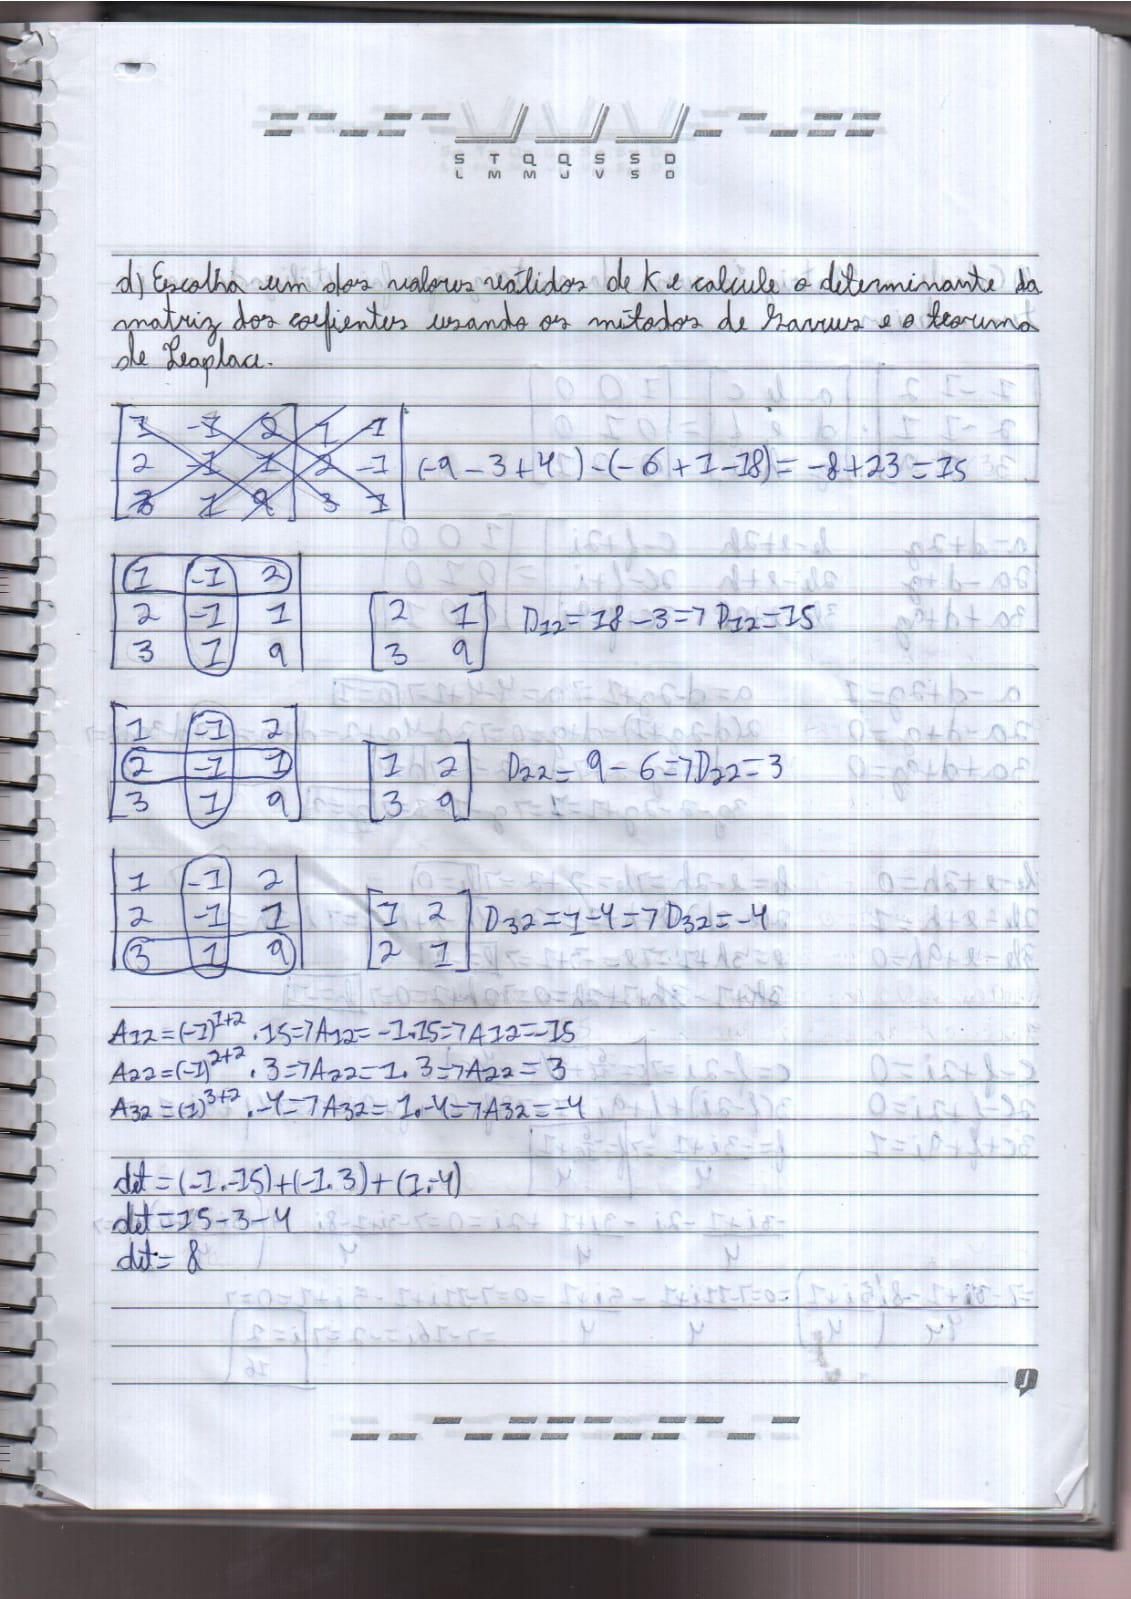 S T Q Q S S D
L M M J V S D
d) Escolha um dos valores válidos de K e calcule o determinante da
matriz dos coefientes usando os métodos de Sarrus e o teorema
de Leaplace.
1 -1 2 1 -1
2 -1 1 2 -1 (-9 - 3 + 4) - (-6 + 1 - 18) = -8 + 23 = 15
3 1 9 3 1
1 -1 2
2 -1 1 2 1 D12 = 18 - 3 => D12 = 15
3 1 9 3 9
1 -1 2
2 -1 1 1 2 D22 = 9 - 6 => D22 = 3
3 1 9 3 9
1 -1 2
2 -1 1 1 2 D32 = 1 - 4 => D32 = -4
3 1 9 2 1
A12 = (-1)^1+2 . 15 => A12 = -1.15 => A12 = -15
A22 = (-1)^2+2 . 3 => A22 = 1.3 => A22 = 3
A32 = (1)^3+2 . -4 => A32 = 1.-4 => A32 = -4
det = (-1.-15) + (-1.3) + (1.-4)
det = 15 - 3 - 4
det = 8